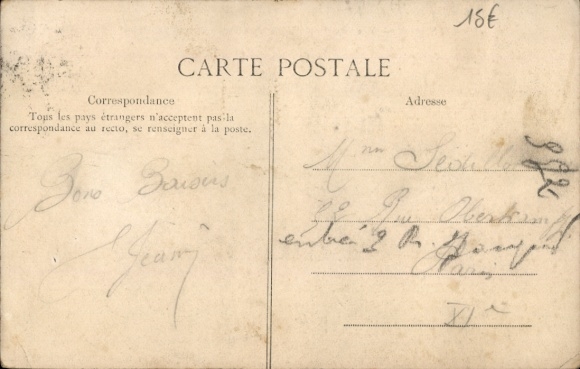 15€
CARTE POSTALE
Correspondance
Tous les pays étrangers n'acceptent pas la
correspondance au recto, se renseigner à la poste.
Bons Baisers
Jeanne
Adresse
Mme
Rue Oberkampf
entrée 2 R.
Paris
XIe